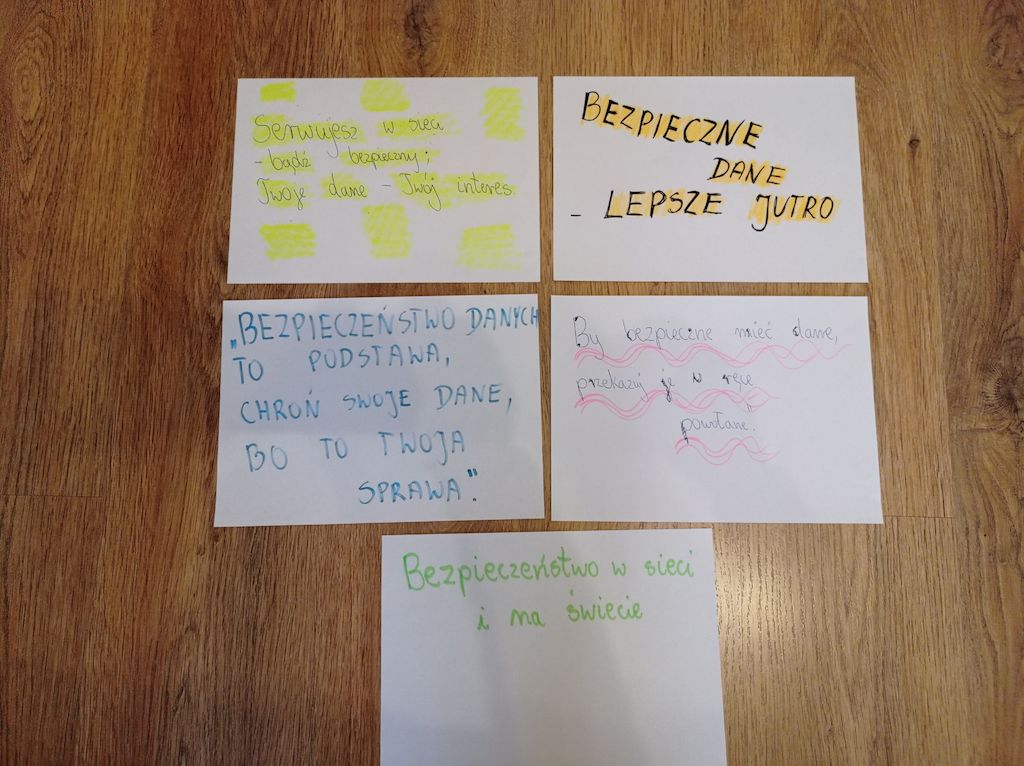 Serwujesz w sieci
- bądź bezpieczny;
Twoje dane - Twój interes
BEZPIECZNE
DANE
- LEPSZE JUTRO
„BEZPIECZEŃSTWO DANYCH
TO PODSTAWA,
CHROŃ SWOJE DANE,
BO TO TWOJA
SPRAWA".
By bezpieczne mieć dane,
przekazuj je w ręce
powołane."
Bezpieczeństwo w sieci
i na świecie